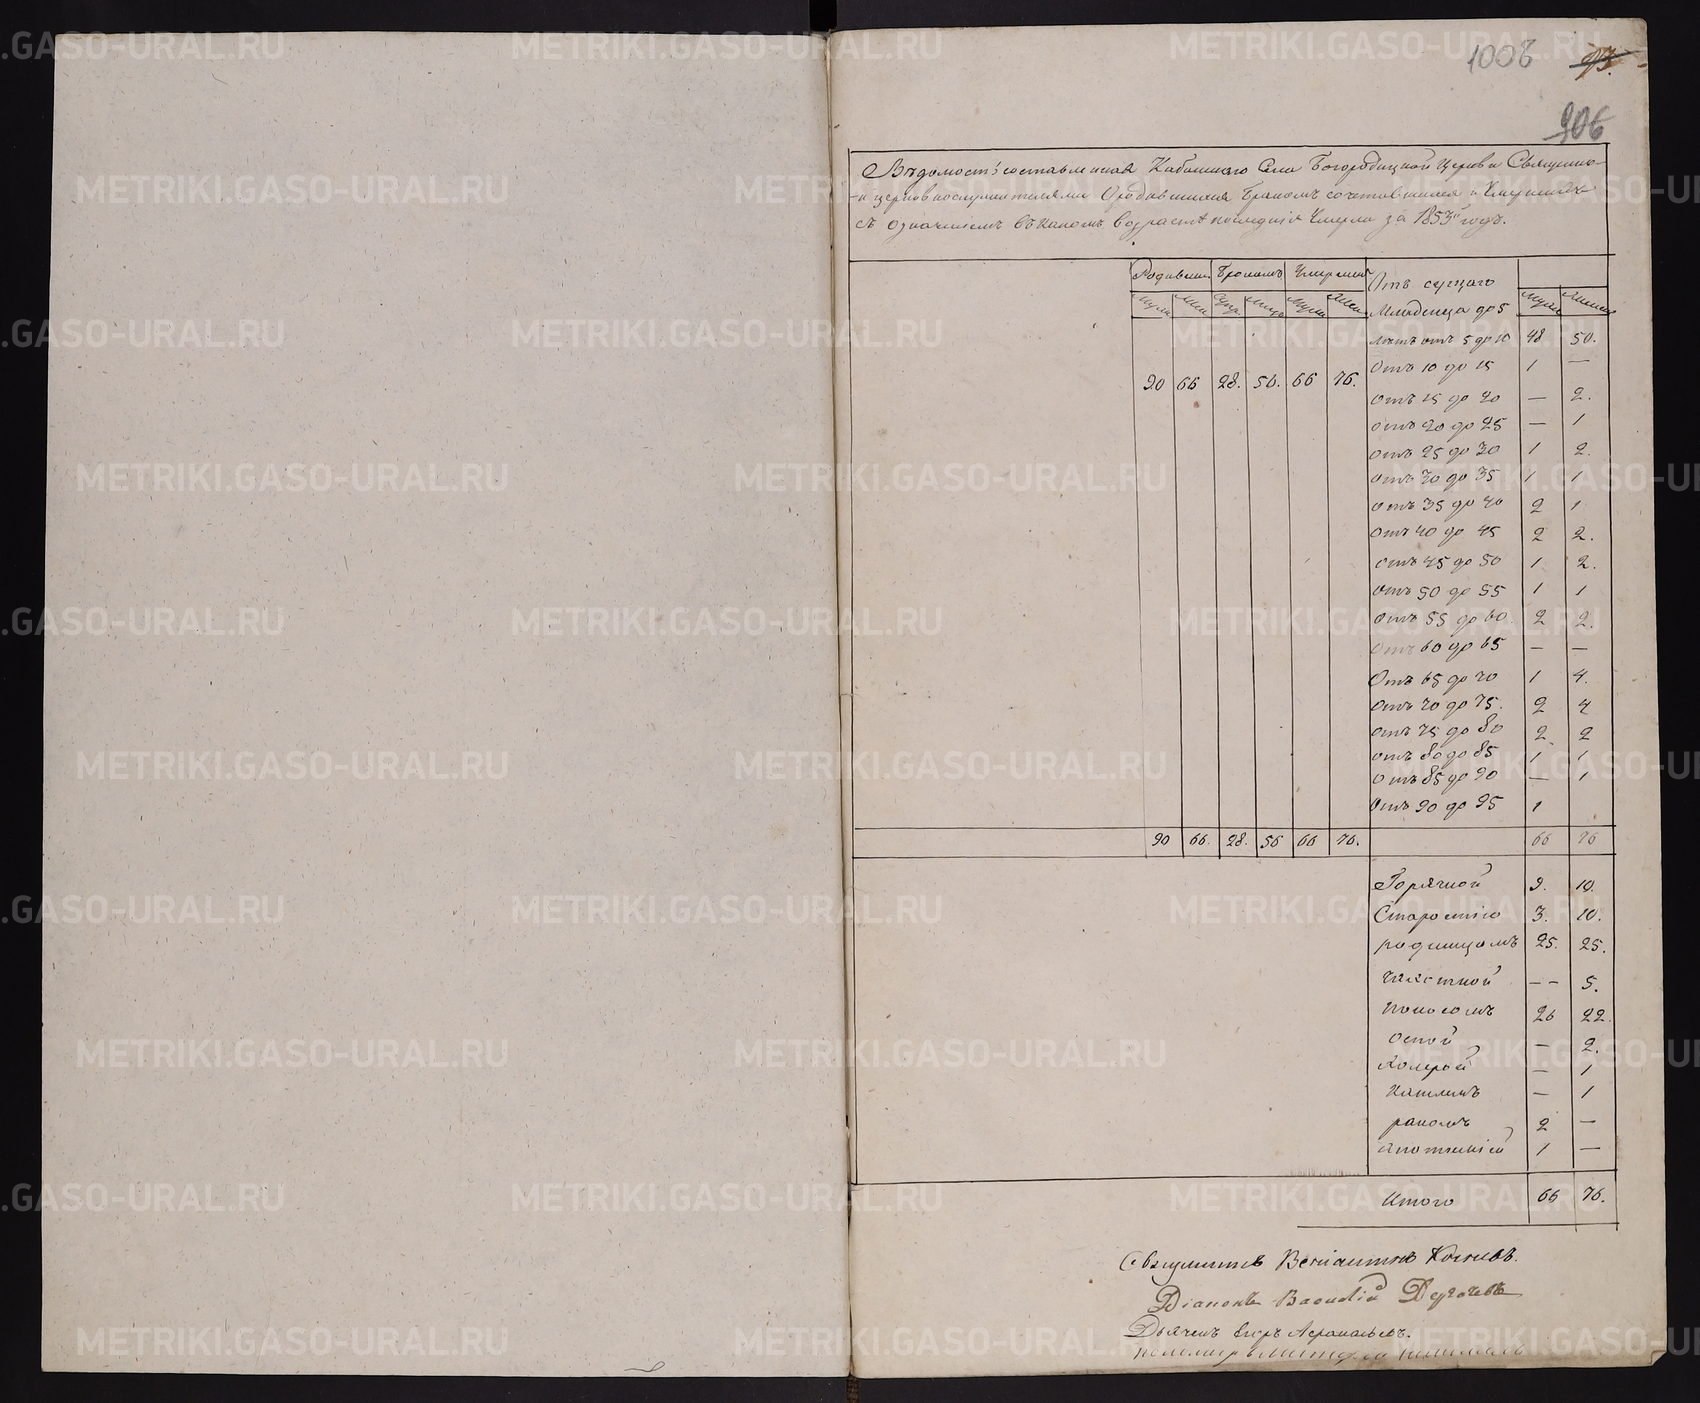 1008 93.
906
Вѣдомость составленная Кабанскаго Села Богородицкой Церкви Священно-
-и церковнослужителями О родившихся Бракомъ сочетавшихся и Умершихъ
съ означеніемъ въ какомъ возрастѣ последніе Умерли за 1853й годъ.
Родивших Бракомъ Умерших Отъ сущаго
Муж Жен Муж Жен Младенца до 5 Муж Женск
лѣтъ отъ 5 до 10 48 50.
Отъ 10 до 15 1 —
90 66 28. 56. 66 76.
отъ 15 до 20 — 2.
отъ 20 до 25 — 1
отъ 25 до 30 1 2.
отъ 30 до 35 1 1
отъ 35 до 40 2 1
отъ 40 до 45 2 2.
отъ 45 до 50 1 2.
отъ 50 до 55 1 1
отъ 55 до 60. 2 2.
отъ 60 до 65 — —
Отъ 65 до 70 1 4.
отъ 70 до 75. 2 4
отъ 75 до 80 2 2
отъ 80 до 85 1 1
отъ 85 до 90 — 1
Отъ 90 до 95 1
90 66. 28. 56 66 76. 66 76
Горячкой 9. 10.
Старостію 3. 10.
родимцомъ 25. 25.
чахоткой – – 5.
поносомъ 26 22.
оспой — 2.
холерой — 1
кашлемъ — 1
ракомъ 2 —
1 —
Итого 66 76.
Священникъ Веніаминъ
Діаконъ Василій
Дьячекъ
METRIKI.GASO-URAL.RU